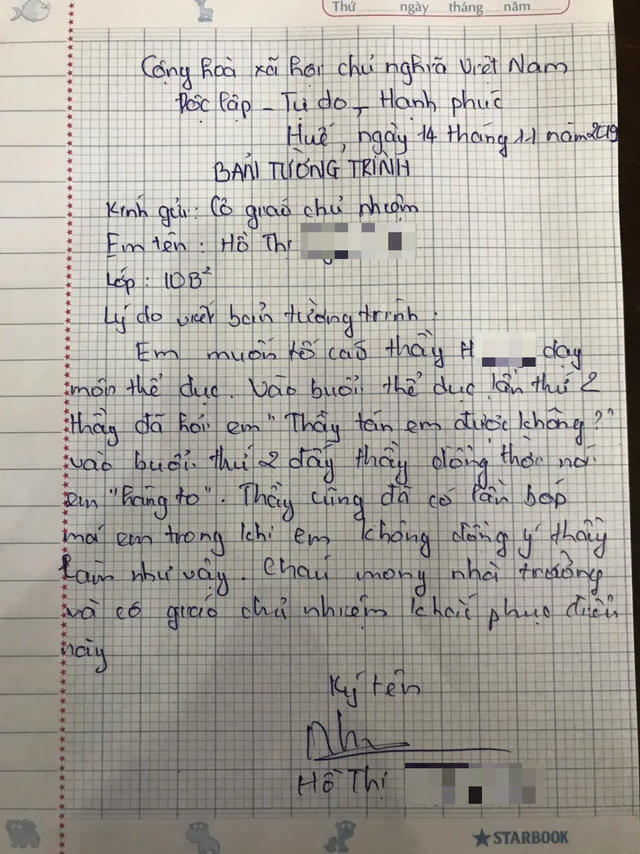 Thứ ngày tháng năm
Cộng hoà xã hội chủ nghĩa Việt Nam
Độc lập - Tự do - Hạnh phúc
Huế, ngày 14 tháng 11 năm 2019
BẢN TƯỜNG TRÌNH
Kính gửi: Cô giáo chủ nhiệm
Em tên: Hồ Thị
Lớp: 10B²
Lý do viết bản tường trình:
Em muốn tố cáo thầy H dạy
môn thể dục. Vào buổi thể dục lần thứ 2
thầy đã hỏi em "Thầy tán em được không?"
vào buổi thứ 2 đấy thầy đồng thời nói
em "hàng to". Thầy cũng đã có lần bóp
má em trong khi em không đồng ý thầy
làm như vậy. Cháu mong nhà trường
và cô giáo chủ nhiệm khắc phục điều
này
Ký tên
Nh
Hồ Thị
STARBOOK